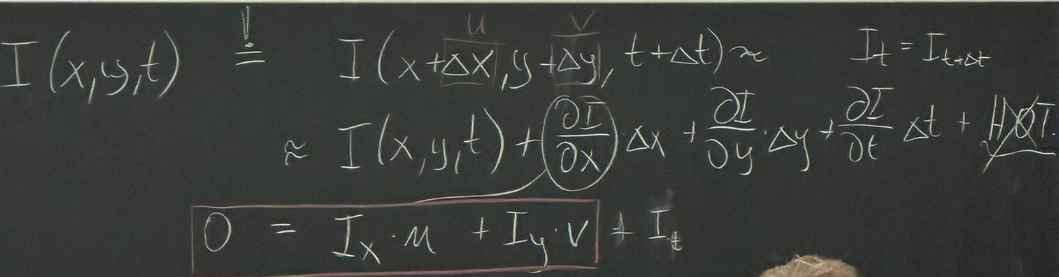 u v
I(x,y,t) =! I(x+Δx, y+Δy, t+Δt) ≈ I_t = I_{t+Δt}
≈ I(x,y,t) + ∂I/∂x · Δx + ∂I/∂y · Δy + ∂I/∂t Δt + HOT
0 = I_x · u + I_y · v + I_t